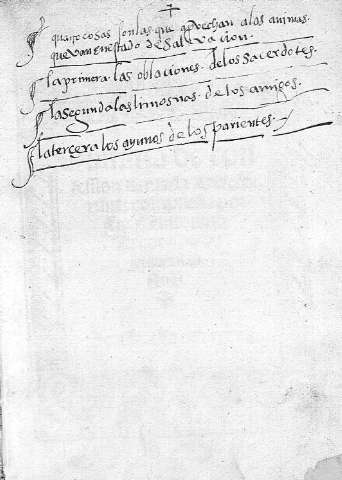 quatro cosas son las que aprovechan a las animas.
que van en estado de salvacion.
la primera. las oblaciones. de los sacerdotes.
la segunda las limosnas. de los amigos.
la terçera los ayunos de los parientes.